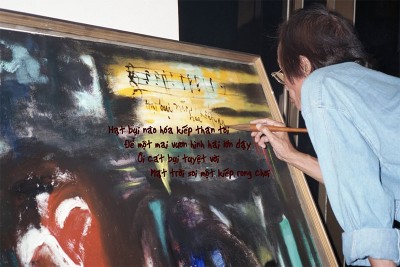 Hạt bụi nào hóa kiếp thân tôi
Để một mai vươn hình hài lớn dậy
Ôi cát bụi tuyệt vời
Mặt trời soi một kiếp rong chơi